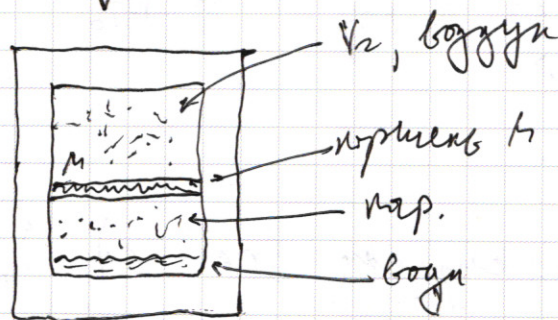 V₂, воздух
M
поршень M
пар.
вода